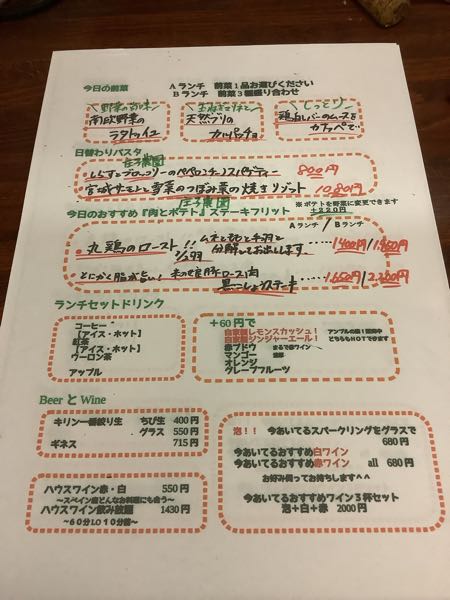 今日の前菜
Aランチ 前菜1品お選びください
Bランチ 前菜3種盛り合わせ
南欧野菜の
ラタトゥイユ
天然ブリの
カルパッチョ
しっとり
鶏白レバーのムースを
カフェで…
日替わりパスタ
庄子農園
しらすとブロッコリーのペペロンチーノスパゲティー 800円
宮城サーモンと雪菜のつぼみ菜の焼きリゾット 1080円
庄子農園
今日のおすすめ『肉とポテト』ステーキフリット
※ポテトを野菜に変更できます
+220円
Aランチ / Bランチ
丸鶏のロースト!! ムネともも と手羽と
1/2羽 分解してお出しします。 ……1400円/1850円
とにかく脂が旨い! 豚ロース肉
黒こしょうステーキ ……1650円/2200円
ランチセットドリンク
コーヒー
【アイス・ホット】
紅茶
【アイス・ホット】
ウーロン茶
アップル
+60円で
自家製レモンスカッシュ!
自家製ジンジャーエール!
どちらもHOTできます
赤ブドウ まるで赤ワイン
マンゴー 濃厚
オレンジ
グレープフルーツ
Beer と Wine
キリン一番搾り生 ちび生 400円
グラス 550円
ギネス 715円
泡!! 今あいてるスパークリングをグラスで
680円
今あいてるおすすめ白ワイン
今あいてるおすすめ赤ワイン all 680円
お好み伺ってお持ちします^^
今あいてるおすすめワイン3杯セット
泡+白+赤 2000円
ハウスワイン赤・白 550円
～スペイン産どんなお料理にも合う～
ハウスワイン飲み放題 1430円
～60分LO10分前～